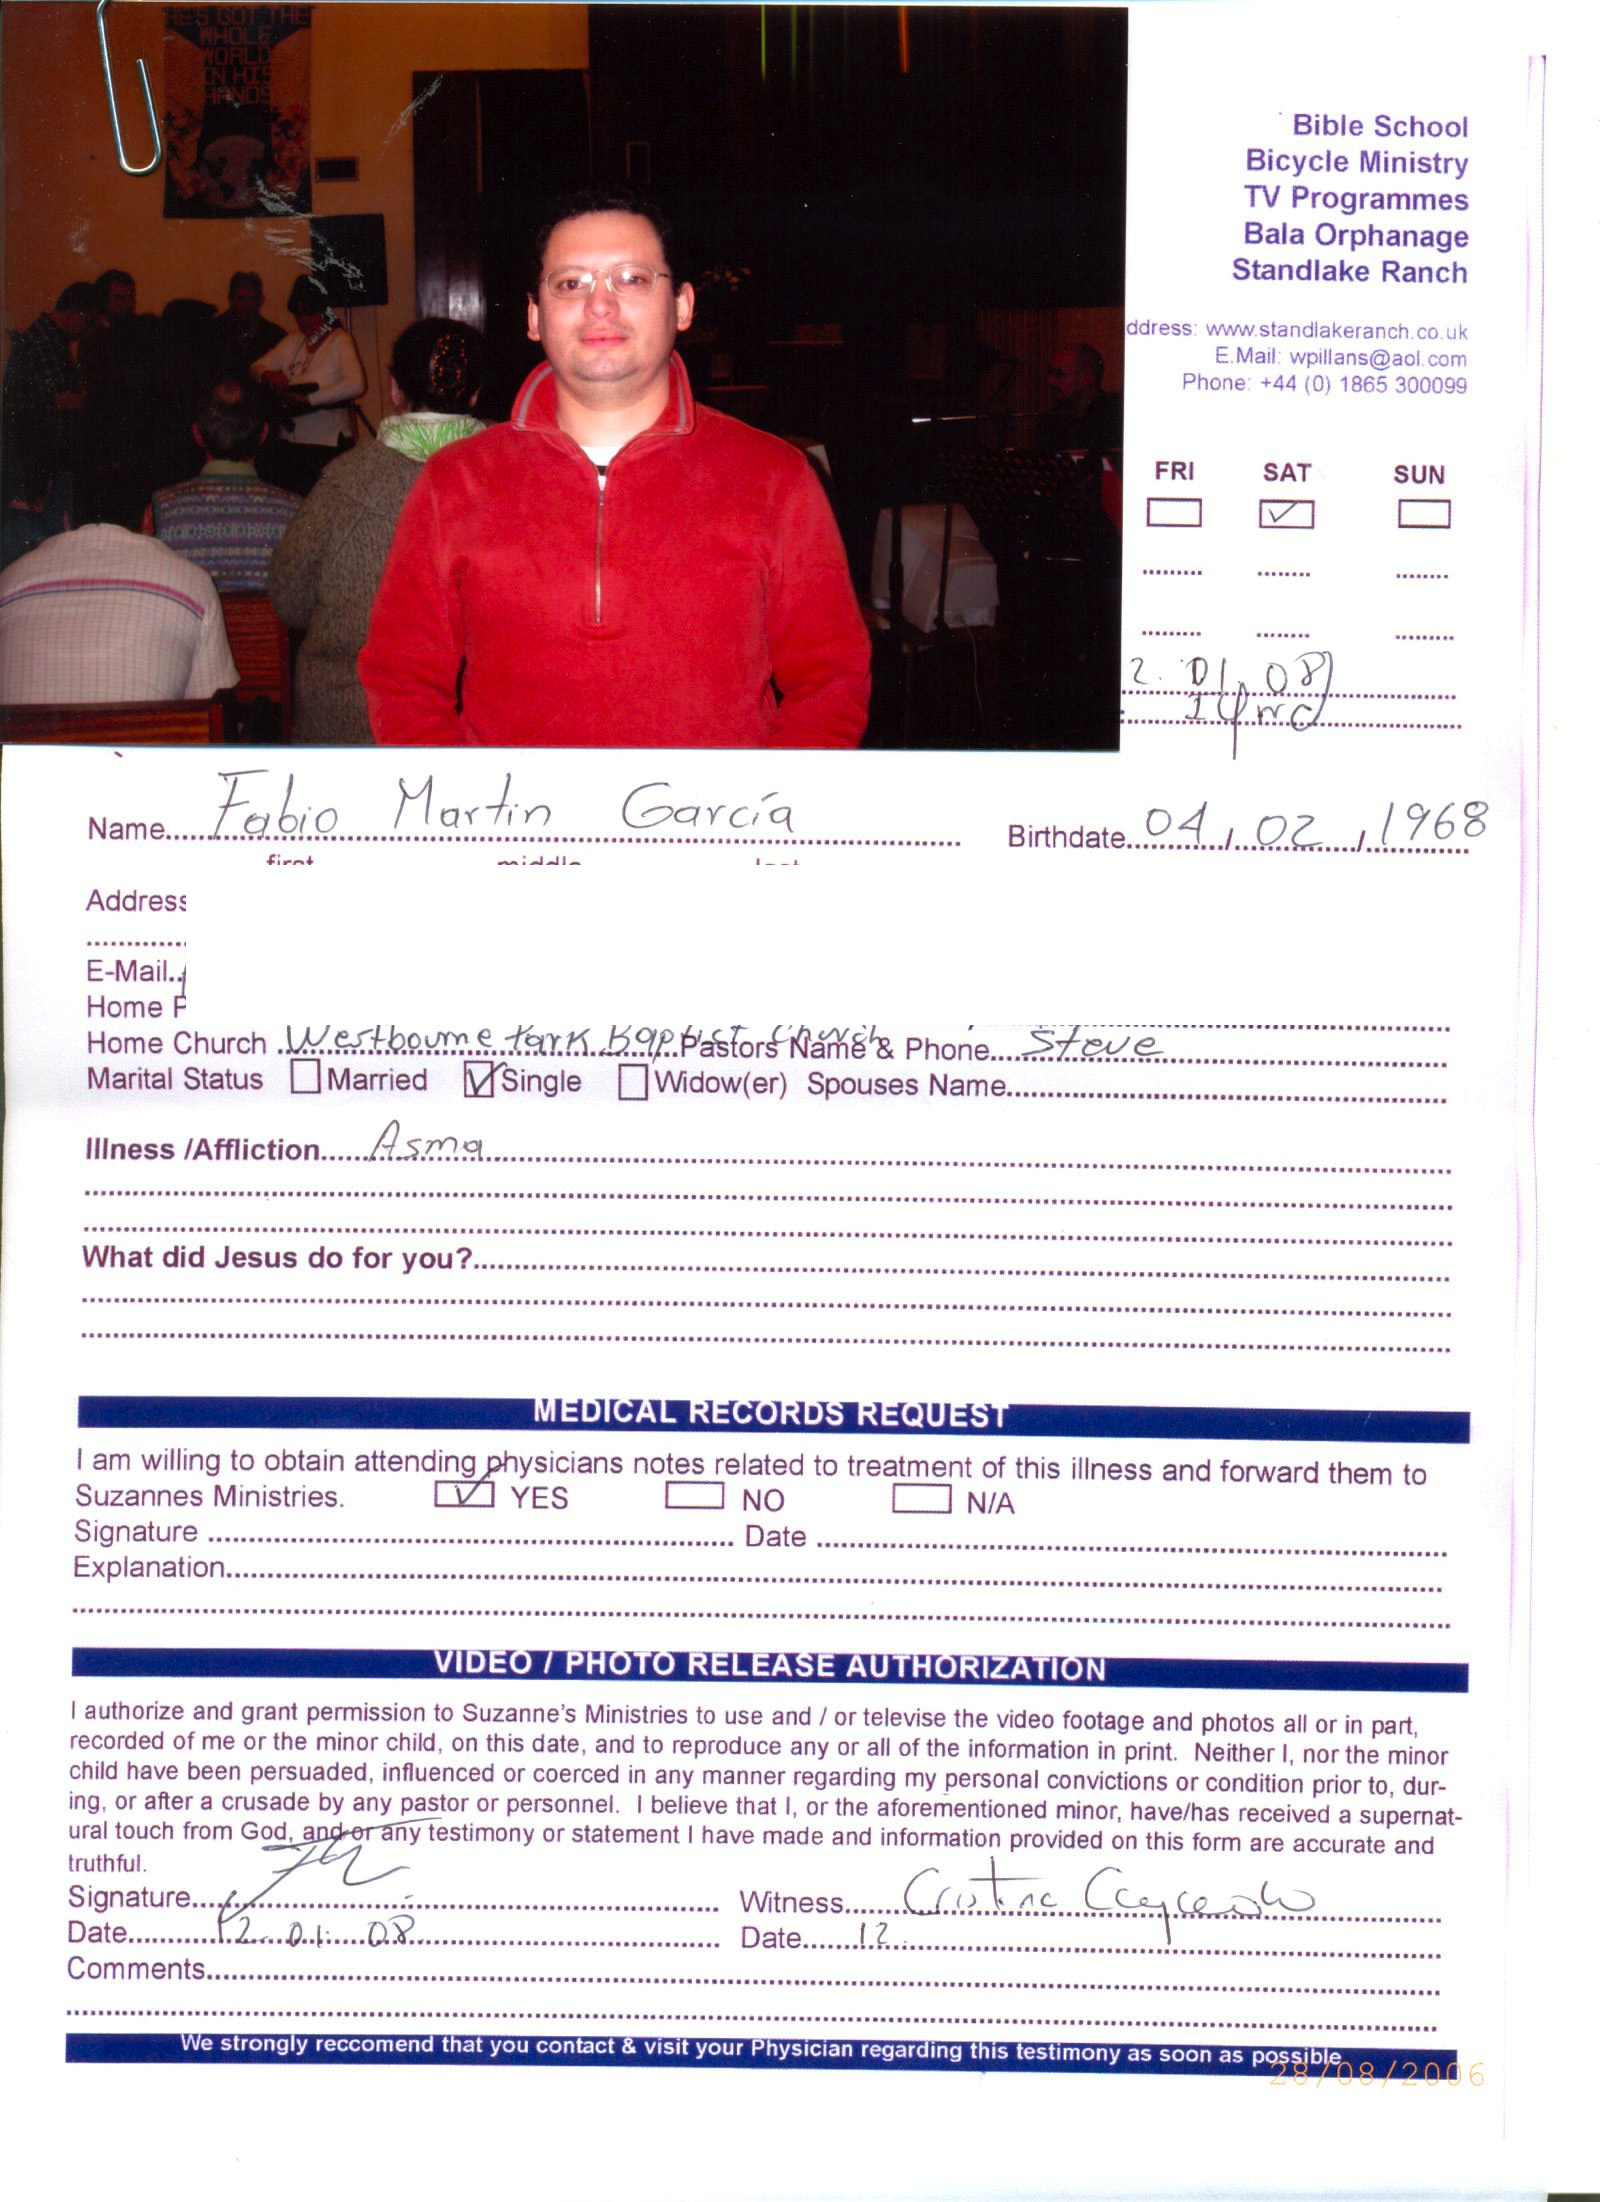 HE'S GOT THE
WHOLE
WORLD
IN HIS
HANDS
Bible School
Bicycle Ministry
TV Programmes
Bala Orphanage
Standlake Ranch
ddress: www.standlakeranch.co.uk
E.Mail: wpillans@aol.com
Phone: +44 (0) 1865 300099
FRI SAT SUN
2. 01. 08
Name Fabio Martin García Birthdate 04 / 02 / 1968
first middle last
Address
E-Mail
Home P
Home Church Westbourne Park Baptist Church Pastors Name & Phone Steve
Marital Status Married Single Widow(er) Spouses Name
Illness /Affliction Asma
What did Jesus do for you?
MEDICAL RECORDS REQUEST
I am willing to obtain attending physicians notes related to treatment of this illness and forward them to
Suzannes Ministries. YES NO N/A
Signature Date
Explanation
VIDEO / PHOTO RELEASE AUTHORIZATION
I authorize and grant permission to Suzanne's Ministries to use and / or televise the video footage and photos all or in part,
recorded of me or the minor child, on this date, and to reproduce any or all of the information in print. Neither I, nor the minor
child have been persuaded, influenced or coerced in any manner regarding my personal convictions or condition prior to, dur-
ing, or after a crusade by any pastor or personnel. I believe that I, or the aforementioned minor, have/has received a supernat-
ural touch from God, and or any testimony or statement I have made and information provided on this form are accurate and
truthful.
Signature Witness Cristina
Date 12. 01. 08 Date 12
Comments
We strongly reccomend that you contact & visit your Physician regarding this testimony as soon as possible
28/08/2006